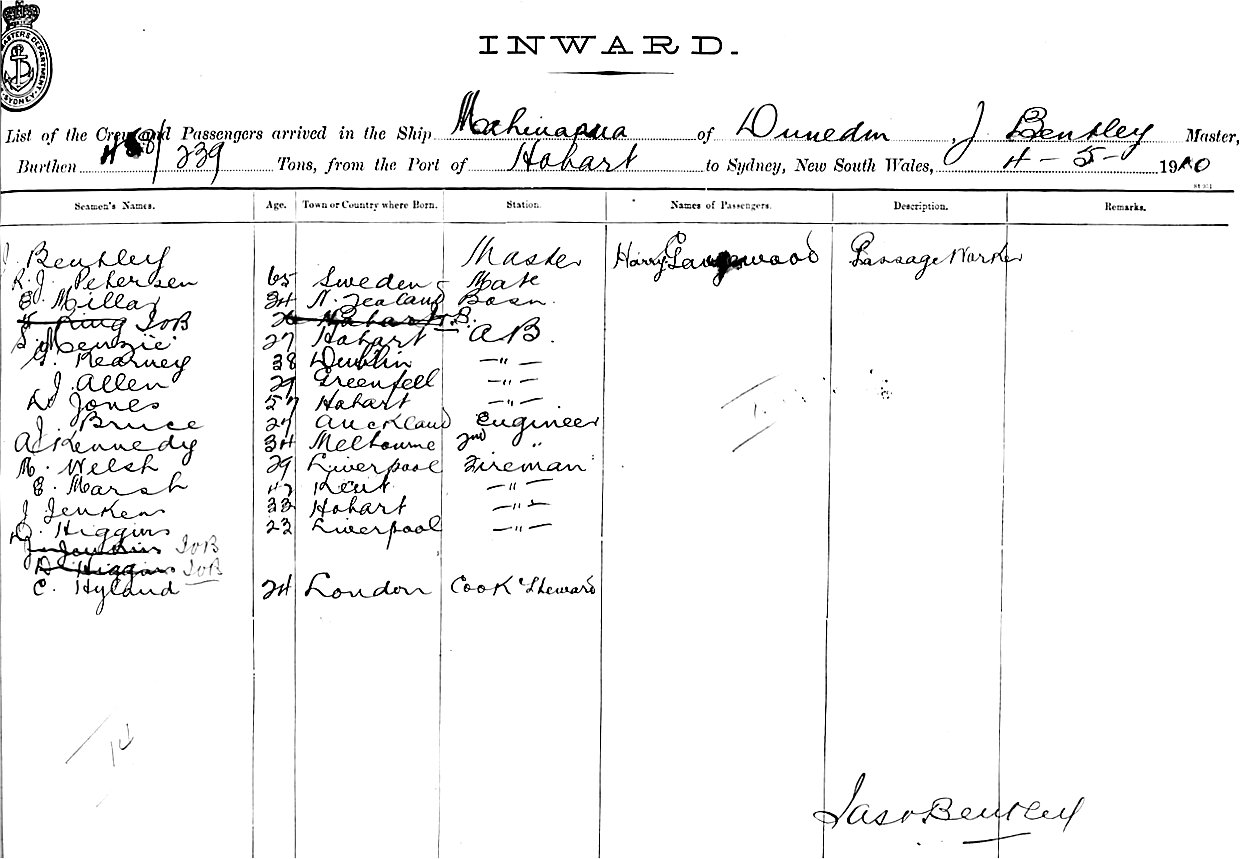 MASTERS DEPARTMENT SYDNEY
INWARD.
List of the Crew and Passengers arrived in the Ship Mahinapua of Dunedin, J Bentley Master,
Burthen 458/239 Tons, from the Port of Hobart to Sydney, New South Wales, 4-5-1910
Seamen's Names. Age. Town or Country where Born. Station. Names of Passengers. Description. Remarks.
J. Bentley Master Harry wood Passage Worker
R. J. Petersen 65 Sweden Mate
E. Millar 34 N. Zealand Bosn.
King JoB 26 Hobart
S. McKenzie 27 Hobart AB.
G. Kearney 38 Dublin —"—
J. Allen 29 Greenfell —"—
D. Jones 57 Hobart —"—
J. Bruce 27 Auckland Engineer
A. Kennedy 34 Melbourne 2nd "
M. Welsh 29 Liverpool Fireman
E. Marsh 47 Kent —"—
J Jenkens 33 Hobart —"—
D. Higgins 23 Liverpool —"—
J. Jenkins JoB
D. Higgins JoB
C. Hyland 24 London Cook & Steward
Jas Bentley